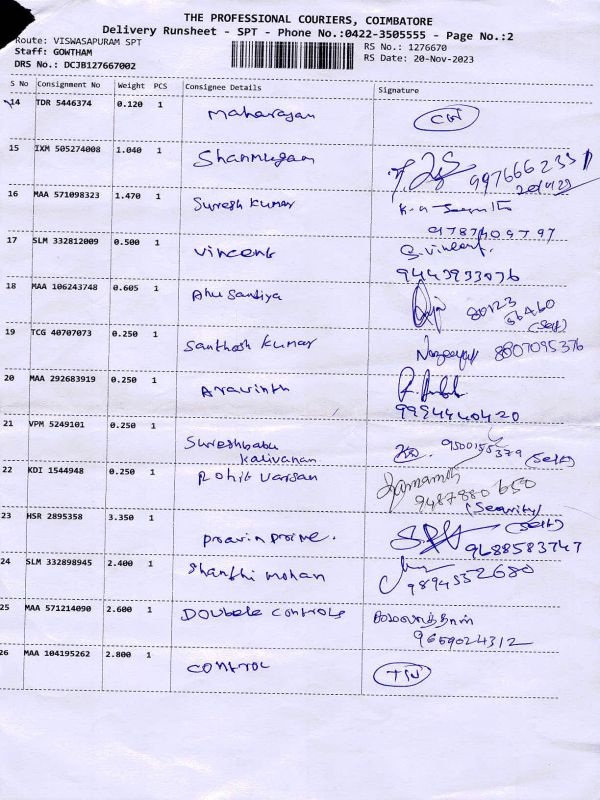 THE PROFESSIONAL COURIERS, COIMBATORE
Delivery Runsheet - SPT - Phone No.:0422-3505555 - Page No.:2
Route: VISWASAPURAM SPT
Staff: GOWTHAM
DRS No.: DCJB127667002
RS No.: 1276670
RS Date: 20-Nov-2023
S No Consignment No Weight PCS Consignee Details Signature
14 TDR 5446374 0.120 1 Maharajan
15 IXM 505274008 1.040 1 Shanmugam
20/11/23
16 MAA 571098323 1.470 1 Suresh Kumar
17 SLM 332812009 0.500 1 Vincent G. Vincent.
9443933076
18 MAA 106243748 0.605 1 Anu Sandiya 80123
56460
(Self)
19 TCG 40707073 0.250 1 Santhosh Kumar 8807095376
20 MAA 292683919 0.250 1 Aravinth
9994440420
21 VPM 5249101 0.250 1 Sureshbabu
Kalivanan 9500155379 (Self)
22 KDI 1544948 0.250 1 Rohit Varsan
9487880650
(Security)
23 HSR 2895358 3.350 1 Pravin Prime. (Self)
9688583747
24 SLM 332898945 2.400 1 Shanthi mohan 9894552680
25 MAA 571214090 2.600 1 Double Controls
9659024312
26 MAA 104195262 2.800 1 Control